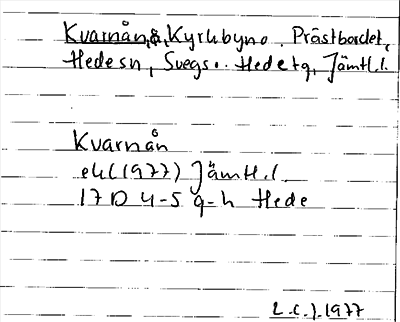 Kvarnån, å, Kyrkbyno. Prästbordet,
Hedesn, Svegs.. Hedetg, Jämtl.l.
Kvarnån
ek (1977) Jämtl.l.
17 D 4-5 g-h Hede
L.C.J. 1977